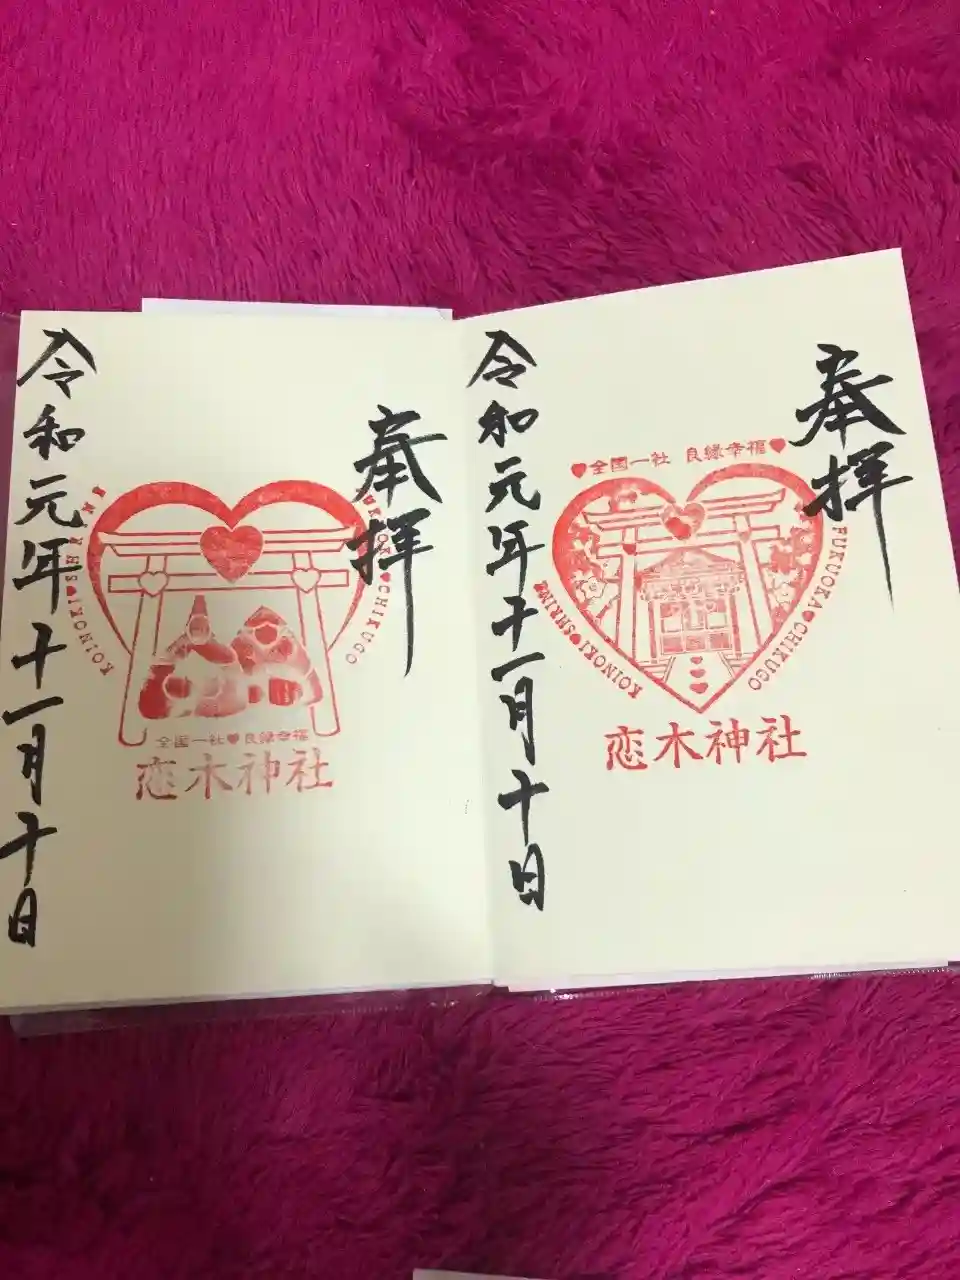 奉拝
♥全国一社 良縁幸福♥
KOINOKI♥SHRINE
FUKUOKA♥CHIKUGO
恋木神社
令和元年十一月十日
奉拝
KOINOKI♥SH
CHIKUGO
全国一社♥良縁幸福
恋木神社
令和元年十一月十日